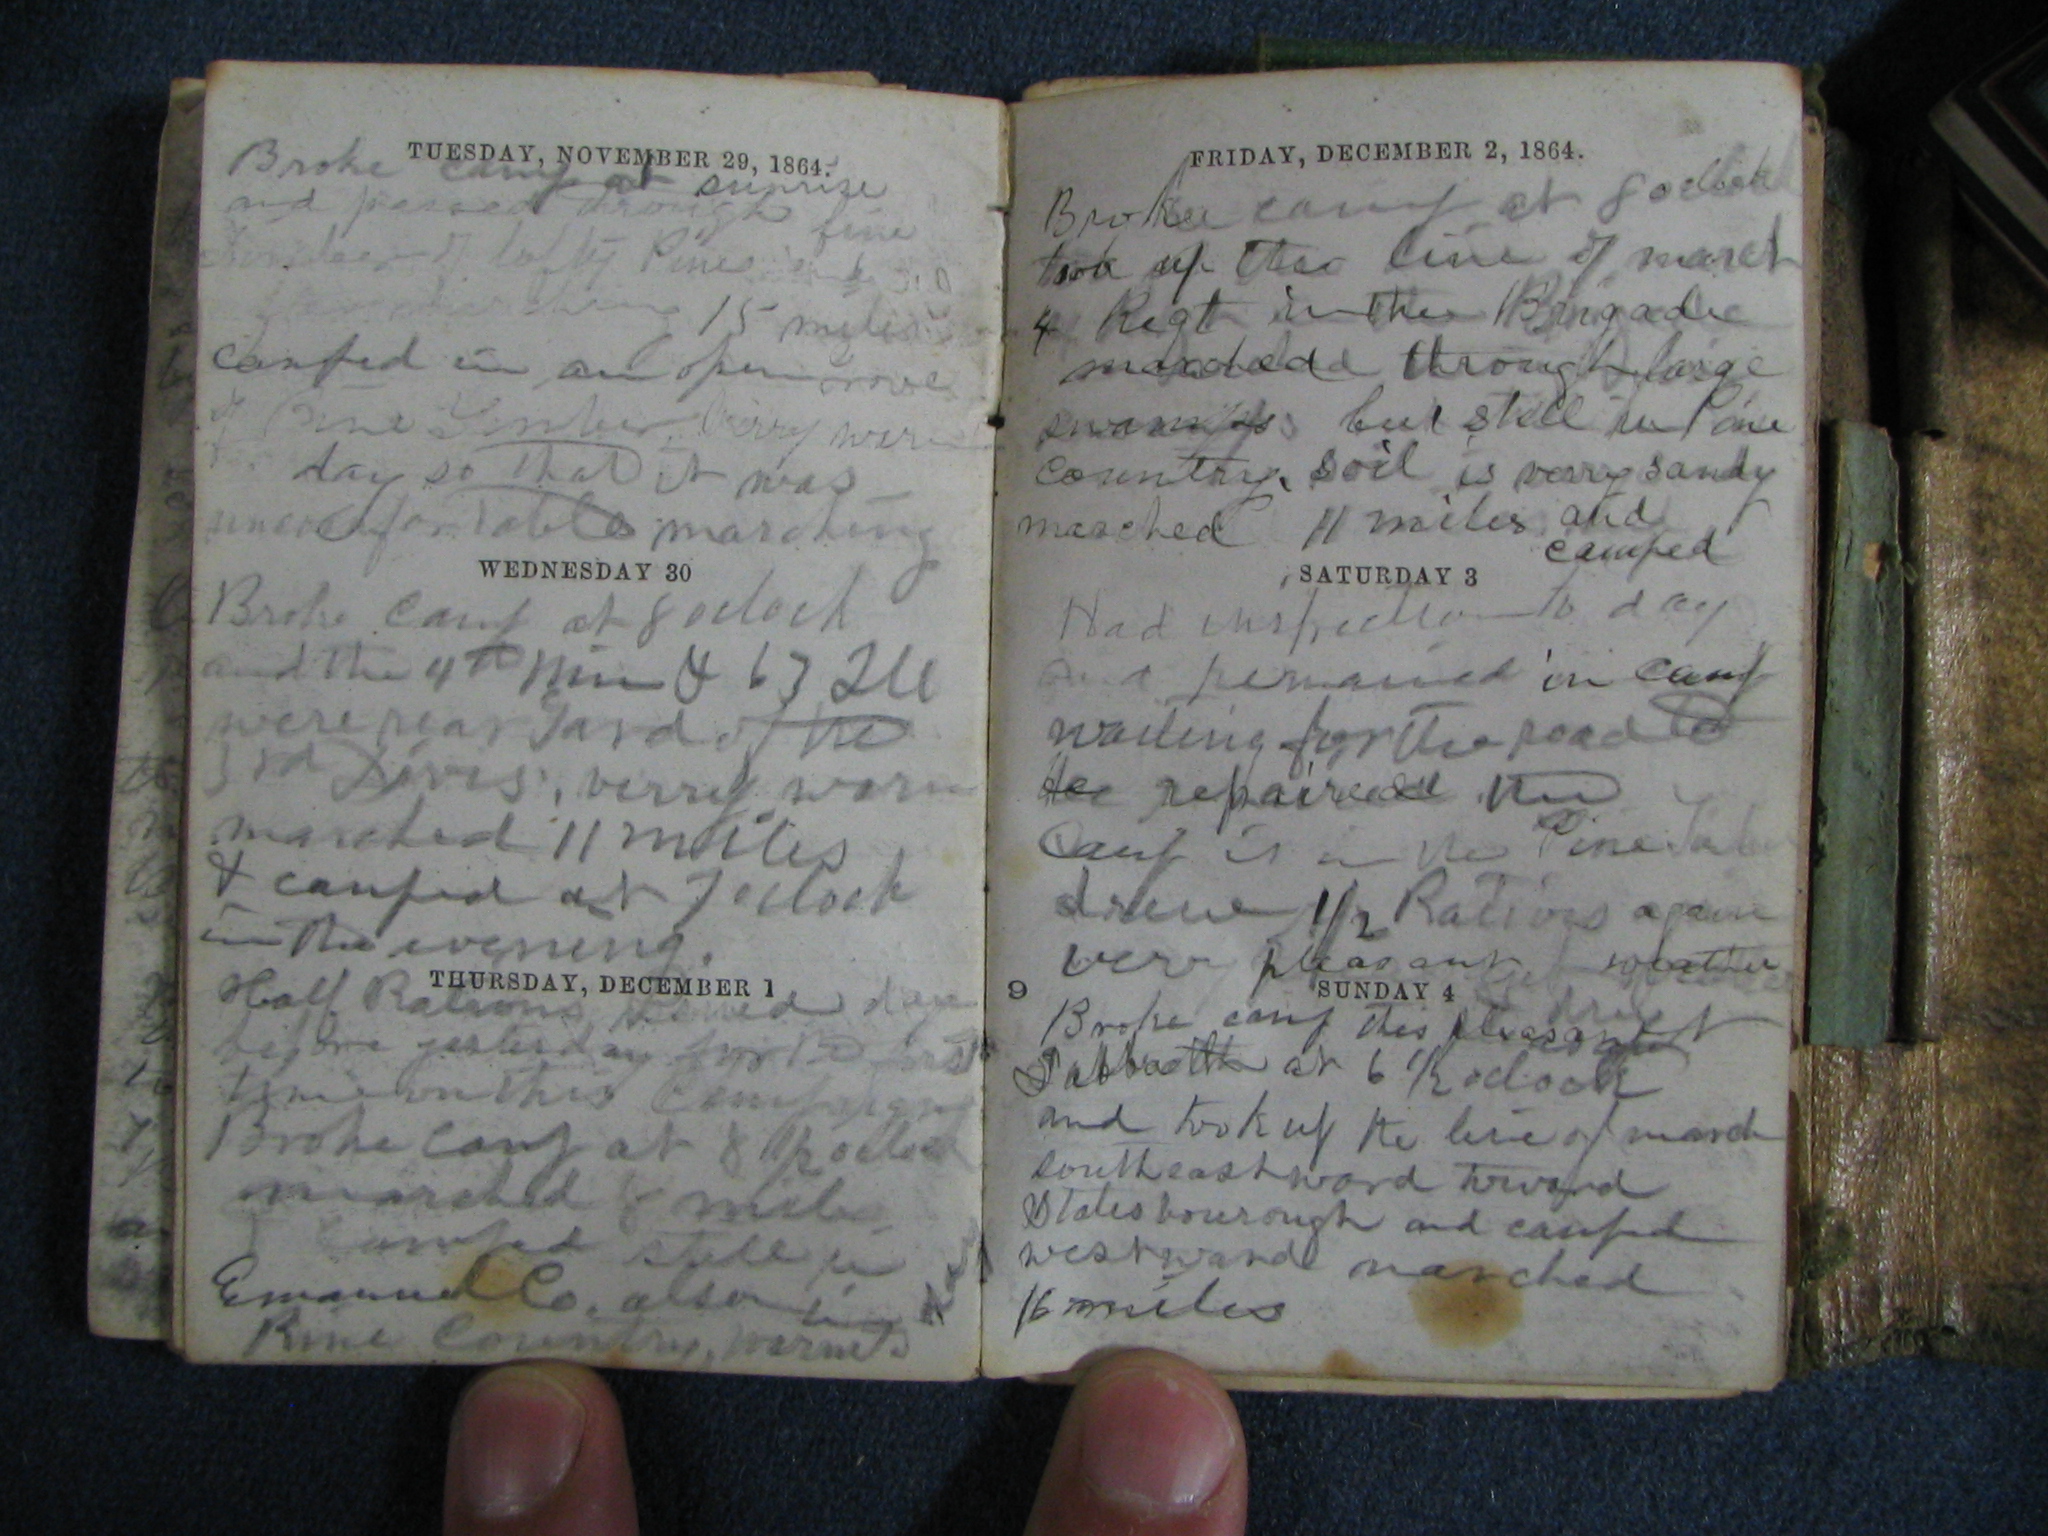 TUESDAY, NOVEMBER 29, 1864.
Broke camp at sunrise
and passed through fine
timber of lofty Pines and
marching 15 miles
camped in an open grove
of Pine Timber, verry warm
day so that it was
uncomfortable marching
WEDNESDAY 30
Broke camp at 8 oclock
and the 4th Min & 63 Ill
were rear Gard of the
3rd Divis, verry warm
marched 11 miles
& camped at 7 oclock
in the evening.
THURSDAY, DECEMBER 1
Half Rations issued day
before yesterday for the first
time on this Campaign
Broke camp at 8 1/2 oclock
marched 8 miles
camped still in
Emanuel Co. also in
Pine Country,
FRIDAY, DECEMBER 2, 1864.
Broke camp at 8 oclock
took up the line of march
4 Regt in the Brigade
marched through large
swamps but still in Pine
country, soil is verry sandy
marched 11 miles and
camped
SATURDAY 3
Had inspection to day
and remained in camp
waiting for the road to
be repaired the
Camp is in the Pine Timber
drew 1/2 Rations again
very pleasant weather
9
SUNDAY 4
Broke camp this pleasant
Sabbath at 6 1/2 oclock
and took up the line of march
southeastward toward
Statesbourough and camped
westward marched
16 miles